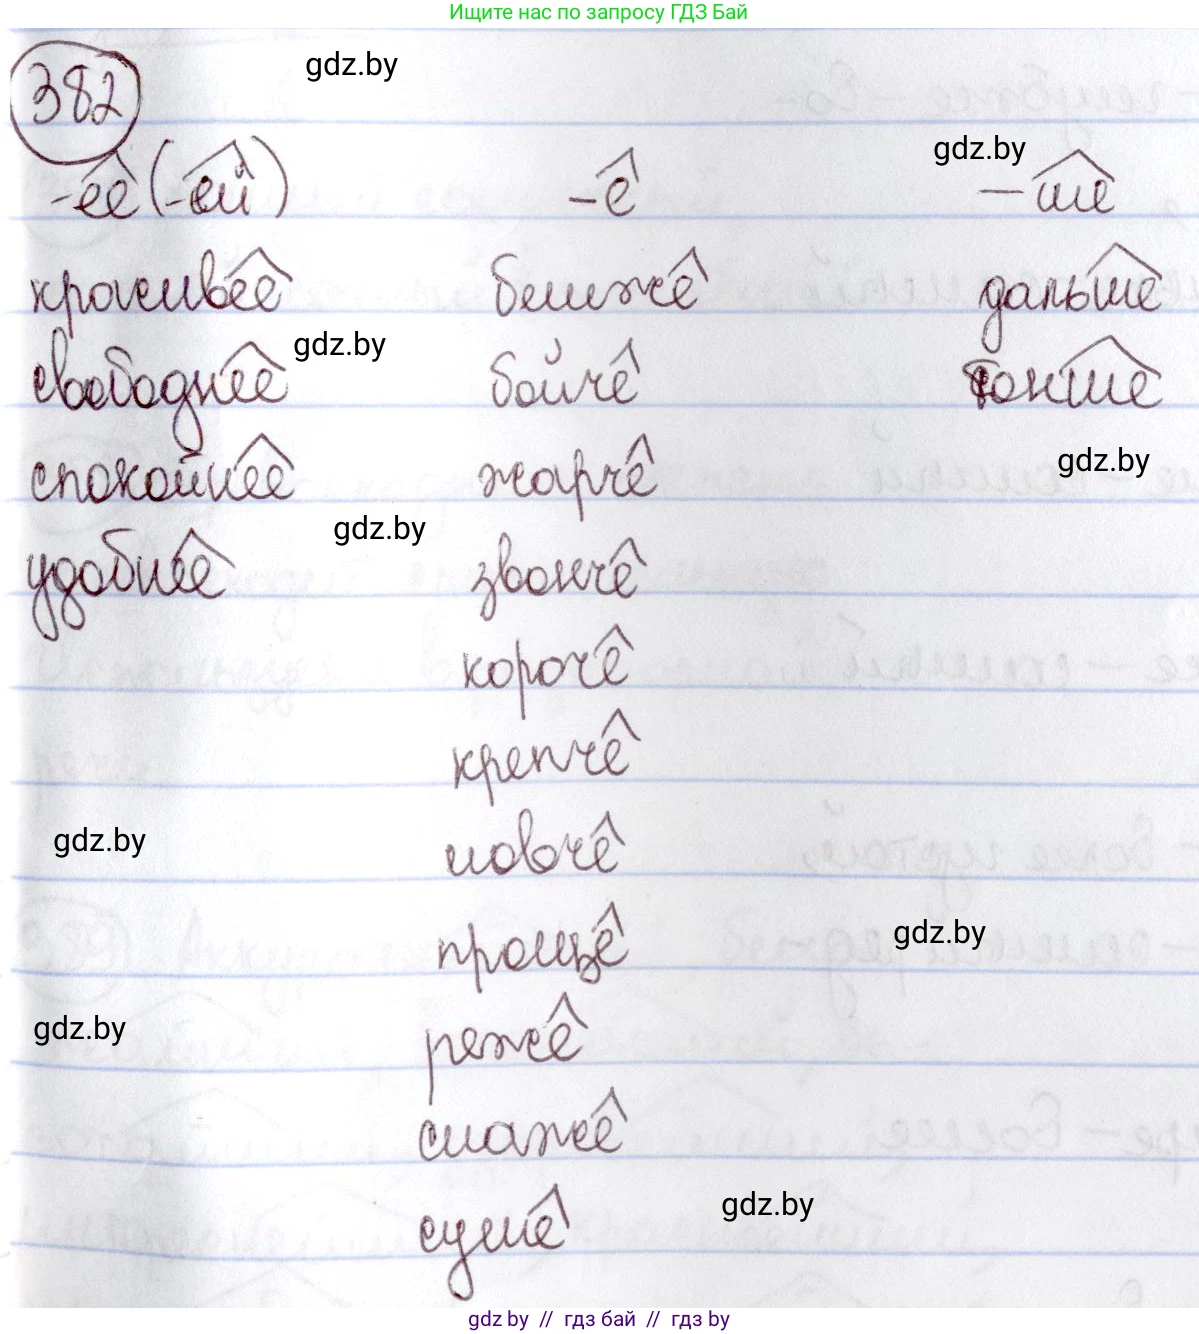 Ищите нас по запросу ГДЗ Бай
382 gdz.by
gdz.by
-ее (-ей) -е -ше
красивее ближе дальше
gdz.by
свободнее бойче тоньше
gdz.by
спокойнее жарче
gdz.by
удобнее звонче
короче
крепче
gdz.by
ловче
gdz.by
проще
gdz.by
реже
слаже
gdz.by
суше
gdz by // гдз бай // гдз by